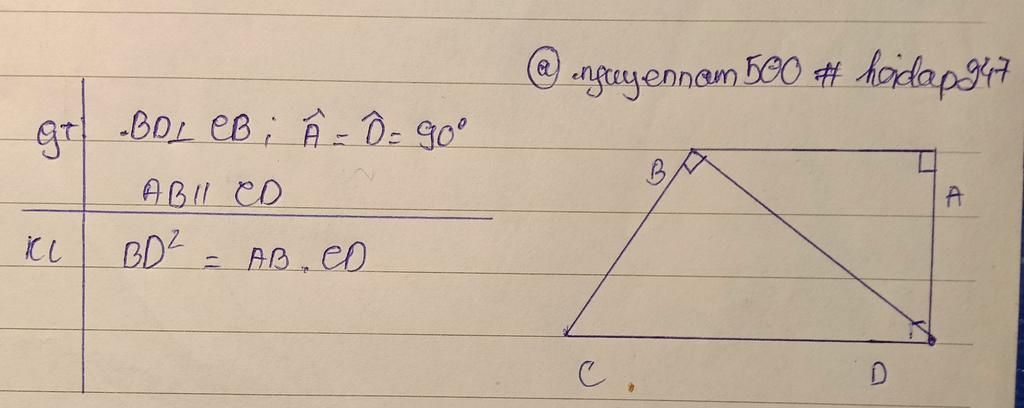 @ .nguyennam500 # hoidap247
gt .BD⊥ CB ; Â = D̂ = 90°
AB // CD
KL BD² = AB . CD
B
A
C
D